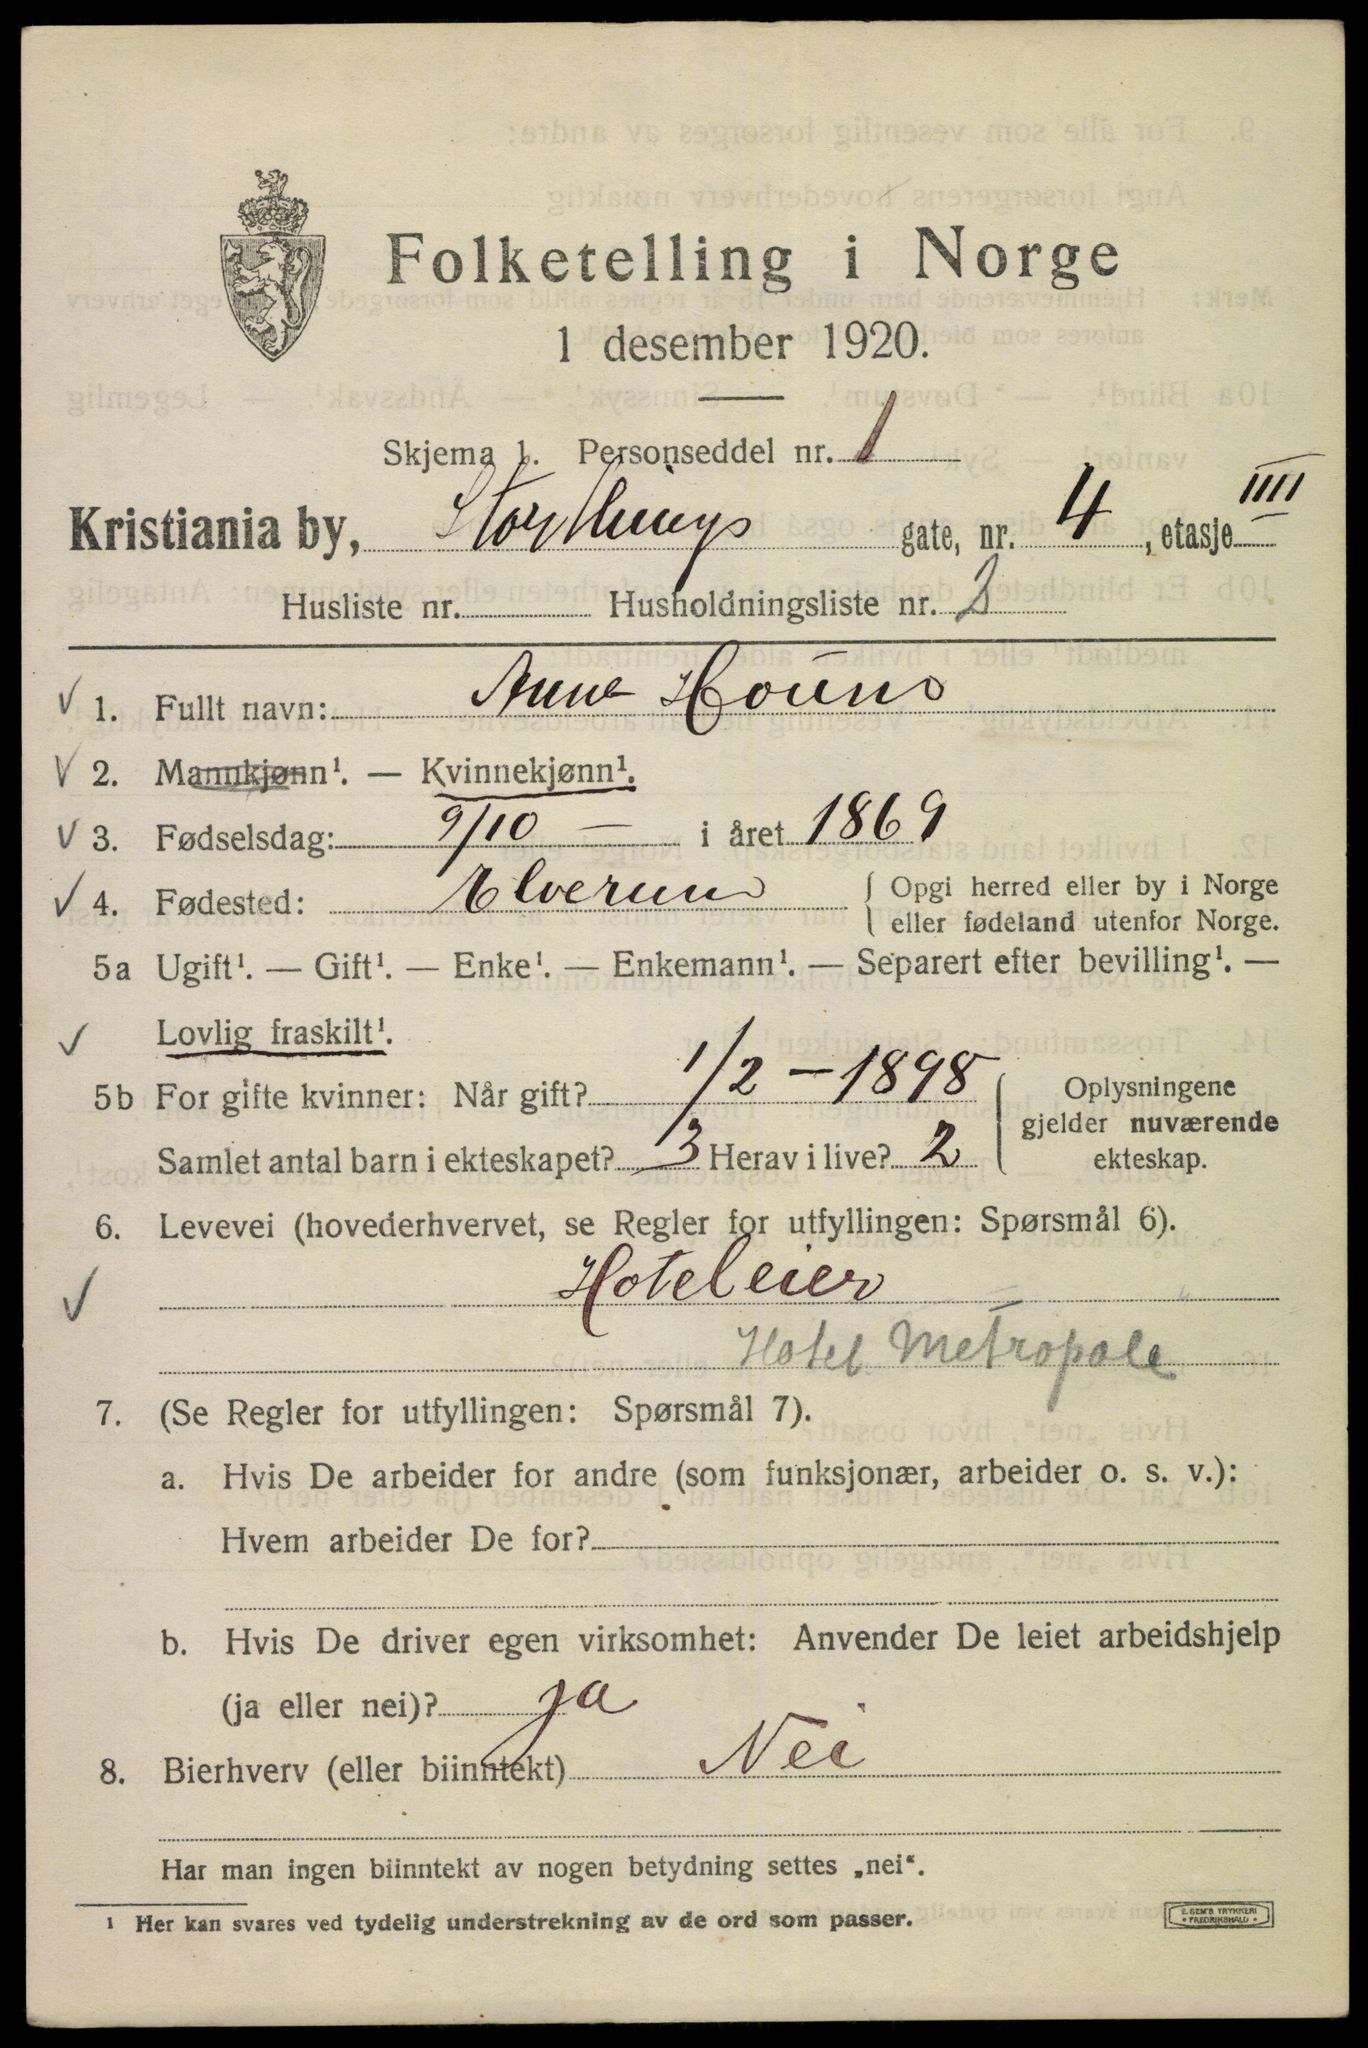 Folketelling i Norge
1 desember 1920.
Skjema 1. Personseddel nr. 1
Kristiania by, Storthings gate, nr. 4, etasje IIII
Husliste nr. Husholdningsliste nr. 3
1. Fullt navn: Anna
2. Mannkjønn¹. — Kvinnekjønn¹.
3. Fødselsdag: 9/10 — i året 1869
4. Fødested: Elverum { Opgi herred eller by i Norge
eller fødeland utenfor Norge.
5a Ugift¹. — Gift¹. — Enke¹. — Enkemann¹. — Separert efter bevilling¹. —
Lovlig fraskilt¹.
5b For gifte kvinner: Når gift? 1/2 – 1898
Samlet antal barn i ekteskapet? 3 Herav i live? 2
Oplysningene
gjelder nuværende
ekteskap.
6. Levevei (hovederhvervet, se Regler for utfyllingen: Spørsmål 6).
Hoteleier
Hotel Metropole
7. (Se Regler for utfyllingen: Spørsmål 7).
a. Hvis De arbeider for andre (som funksjonær, arbeider o. s. v.):
Hvem arbeider De for?
b. Hvis De driver egen virksomhet: Anvender De leiet arbeidshjelp
(ja eller nei)? ja
8. Bierhverv (eller biinntekt) Nei
Har man ingen biinntekt av nogen betydning settes „nei“.
¹ Her kan svares ved tydelig understrekning av de ord som passer.
E. SEM'S TRYKKERI
• FREDRIKSHALD •